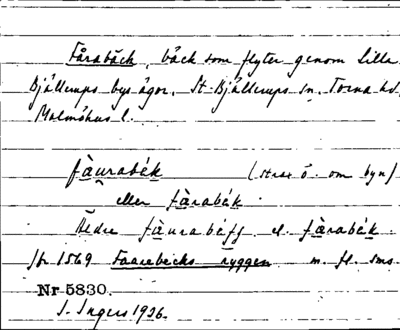 Fårabäck, bäck som flyter genom Lilla
Bjällerups bys ägor. St. Bjällerups sn. Torna hd,
Malmöhus l.
fàurabék (strax ö. om byn)
eller fàrabék
Äldre fàurabéjj el. fàrabék.
fr. 1569 Faarebecks ryggen m. fl. sms.
Nr 5830.
I. Ingers 1926.